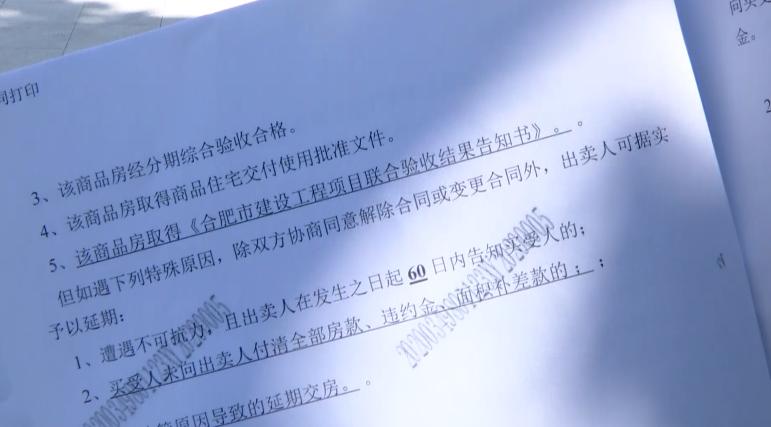 同打印
3、该商品房经分期综合验收合格。
4、该商品房取得商品住宅交付使用批准文件。
5、该商品房取得《合肥市建设工程项目联合验收结果告知书》。。
但如遇下列特殊原因，除双方协商同意解除合同或变更合同外，出卖人可据实
予以延期：
1、遭遇不可抗力，且出卖人在发生之日起 60 日内告知买受人的；
2、买受人未向出卖人付清全部房款、违约金、面积补差款的；；
原因导致的延期交房。。
金。